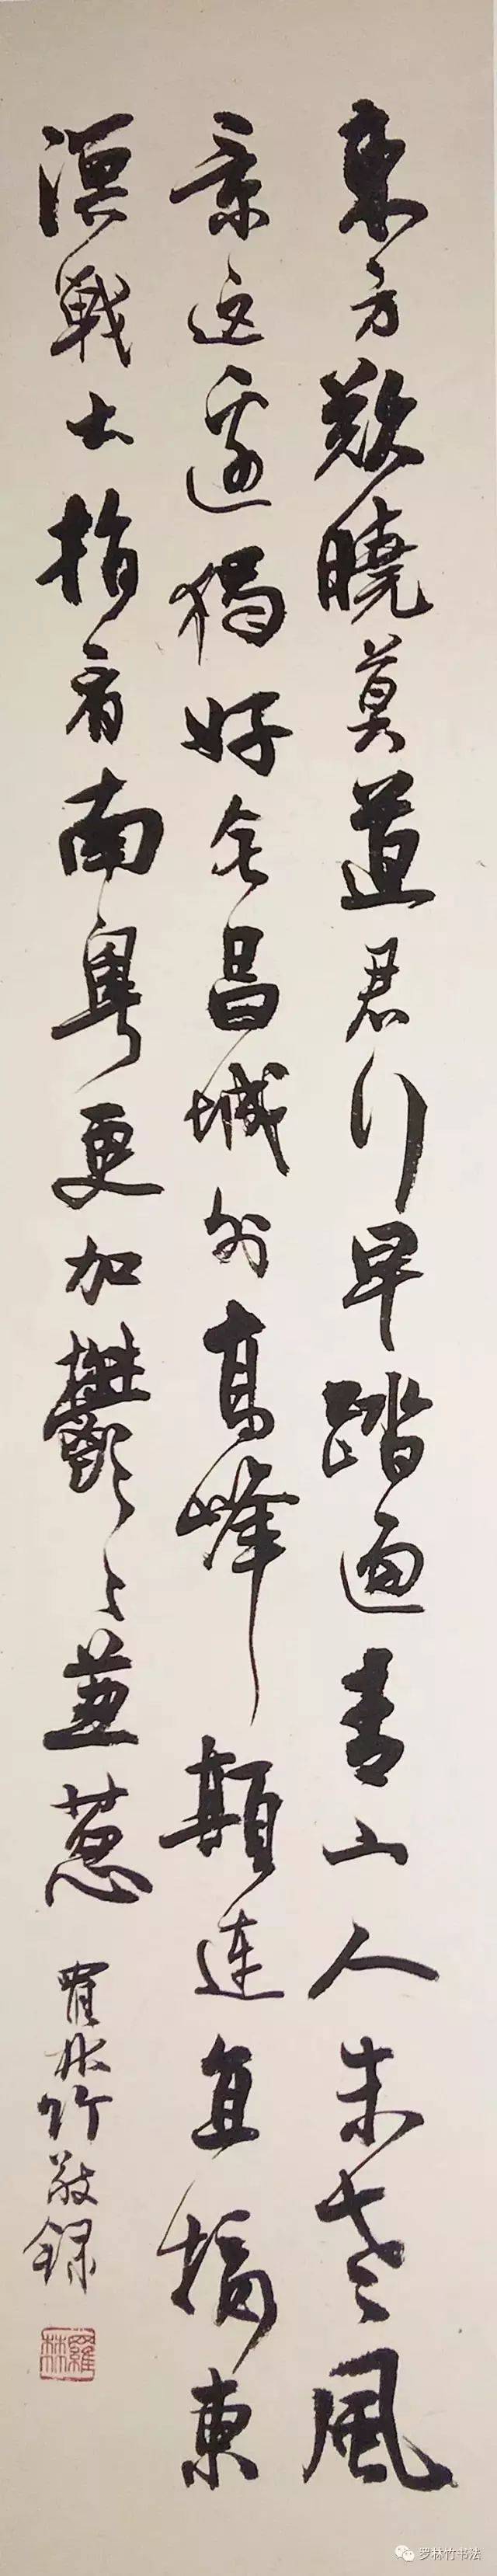 東方欲曉莫道君行早踏遍青山人未老風
景这邊獨好会昌城外高峰顛連直接東
溟戰士指看南粤更加鬱々葱葱
羅林竹敬錄
羅林
罗林竹书法